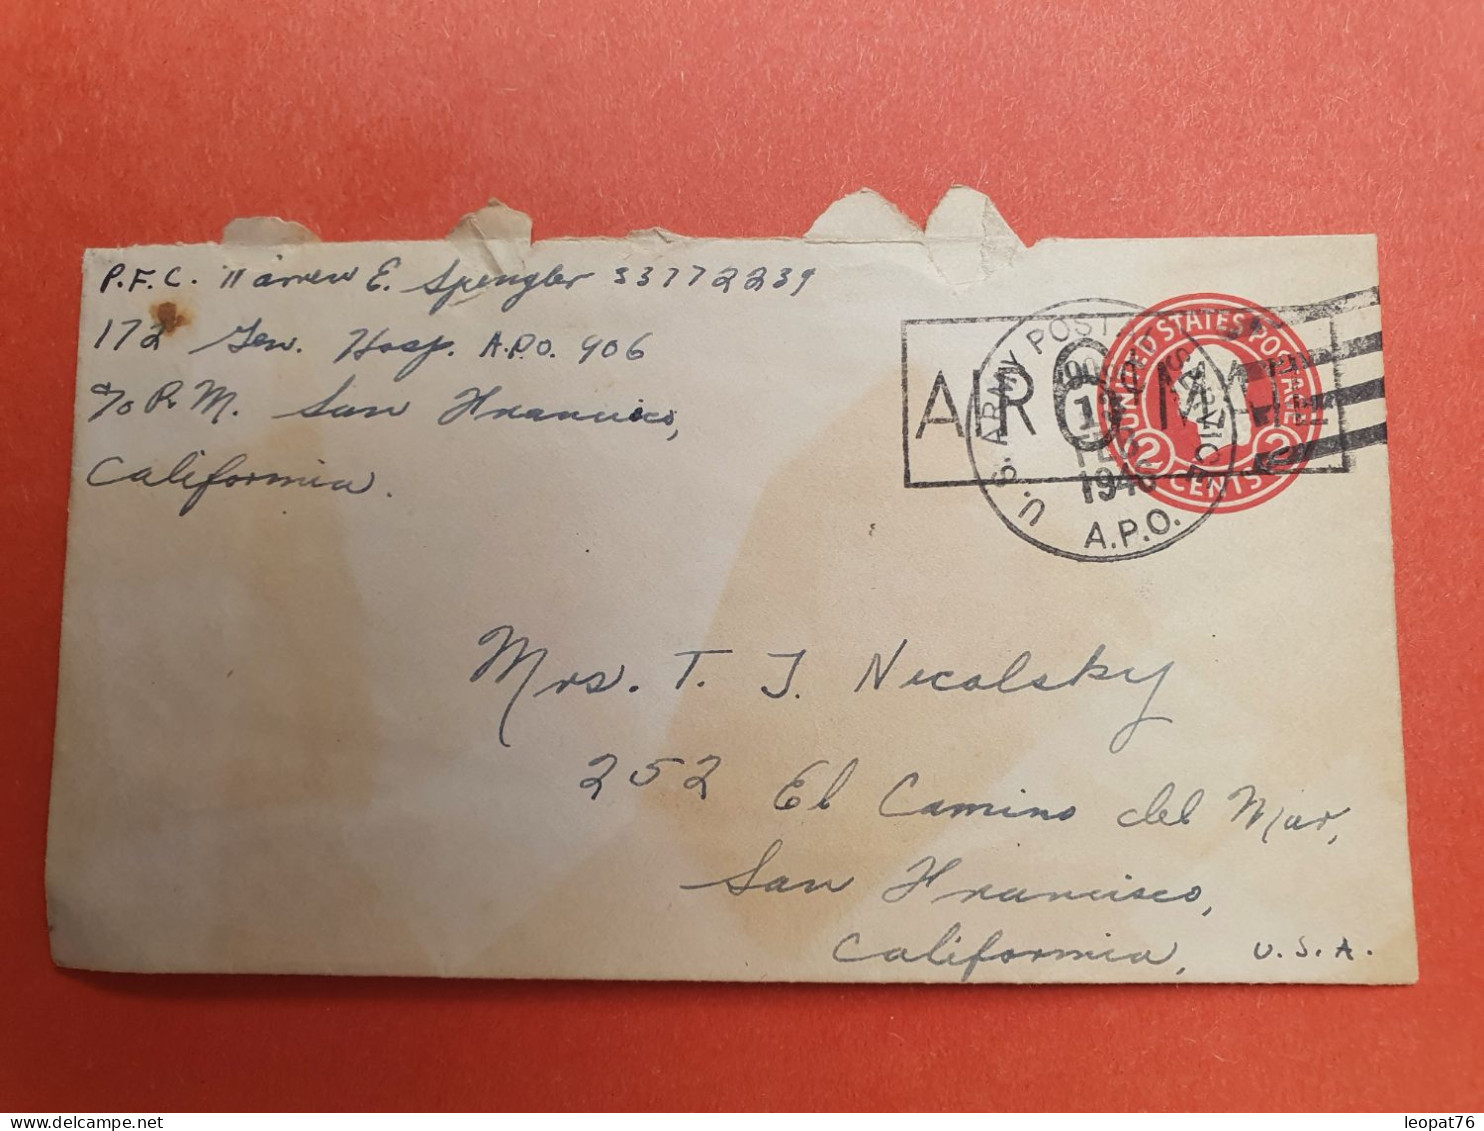 P.F.C. Warren E. Spengler 33772239
172 Gen. Hosp. A.P.O. 906
c/o P.M. San Francisco,
California.
AIR MAIL
U.S. ARMY POSTAL SERVICE
906
1
FEB
1946
A.P.O.
UNITED STATES POSTAGE
2 CENTS 2
Mrs. T. J. Nicolsky
252 El Camino del Mar,
San Francisco,
California, U.S.A.
delcampe.net
leopat76